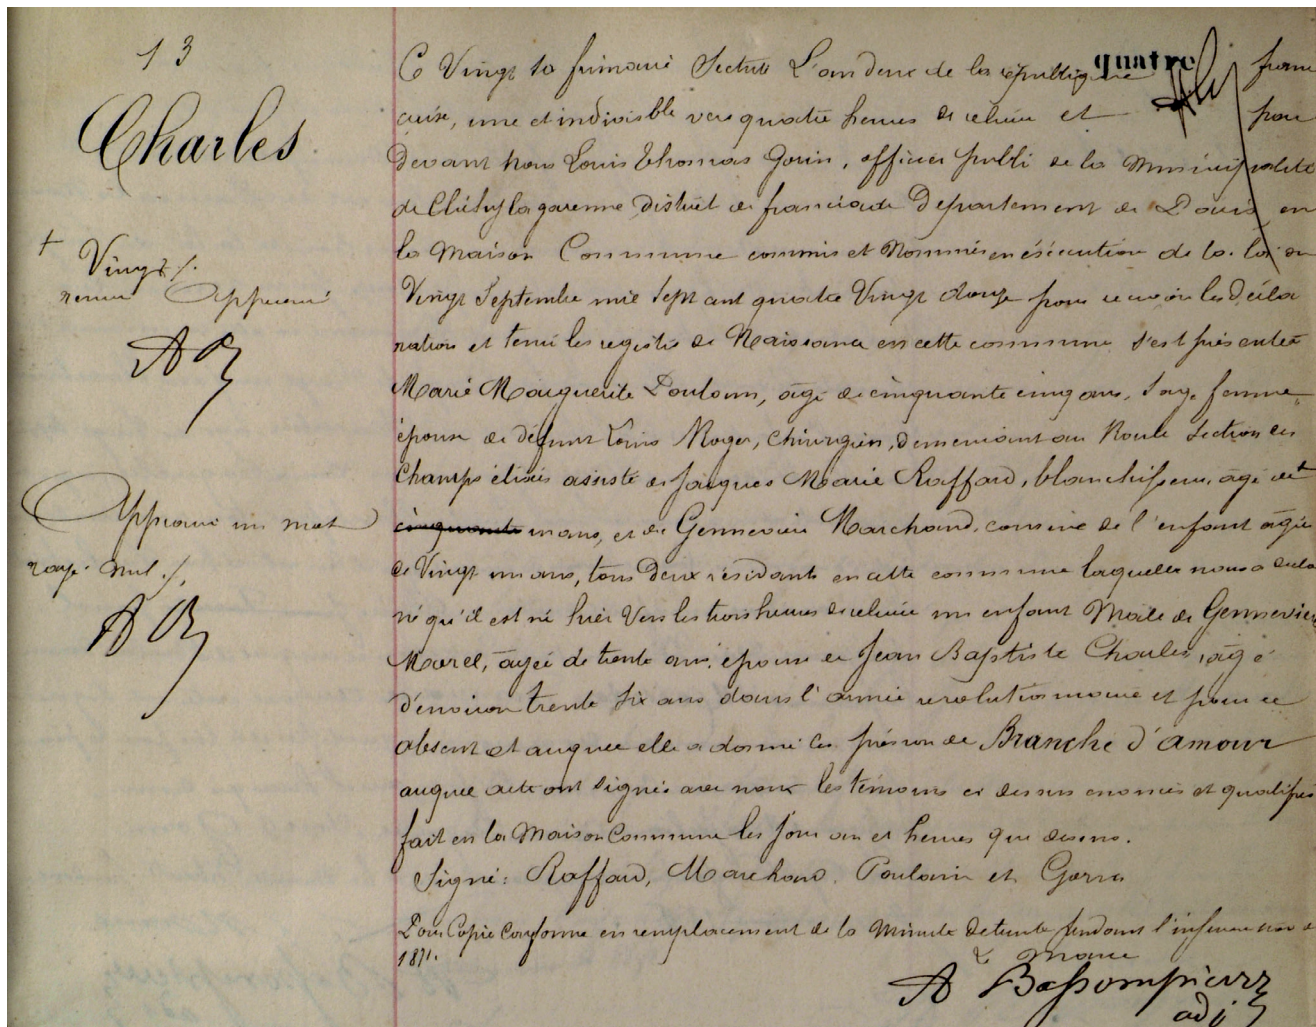 13
Charles
+ Vingt /.
renvoi Approuvé
AB
Approuvé un mot
rayé nul ./.
AB
quatre
Ce Vingt to frimaire Sectidi L'an deux de la république fran
caise, une et indivisible vers quatre heures de relevée et par
Devant nous Louis Thomas Gorin, officier public de la Municipalité
de Clichy la garenne District de franciade Departement de Paris en
la Maison Commune commis et Nommé en éxécution de la loi du
Vingt Septembre mil Sept cent quatre Vingt douze pour recevoir les décla
ration et tenir les registre de Naissance en cette commune s'est présentée
Marie Marguerite Poulain, âgé de cinquante cinq ans, Sage femme
épouse de défunt Louis Roger, chirurgien, demeurant au Roule Section des
Champs élisés assisté de Jacques Marie Raffard, blanchisseur, âgé de +
cinquante un ans, et de Gennevieve Marchand, cousine de l'enfant âgée
de Vingt un ans, tous deux résidants en cette commune laquelle nous a décla
ré qu'il est né hier Vers les trois heures de relevée un enfant Male de Gennevieve
Morel, âgée de trente ans, épouse de Jean Baptiste Charles, âgé
d'environ trente six ans dans l'armée revolutionnaire et pour ce
absent et auquel elle a donné les prénoms de Branche d'amour
auquel acte ont signés avec nous les témoins ci dessus enoncés et qualifiés
fait en la Maison Commune les jour an et heures que dessus.
Signé: Raffard, Marchand, Poulain et Gorin
Pour Copie Conforme en remplacement de la Minute detruite pendant l'insurrection de
1871. Le Maire
A Bassompierre
adj